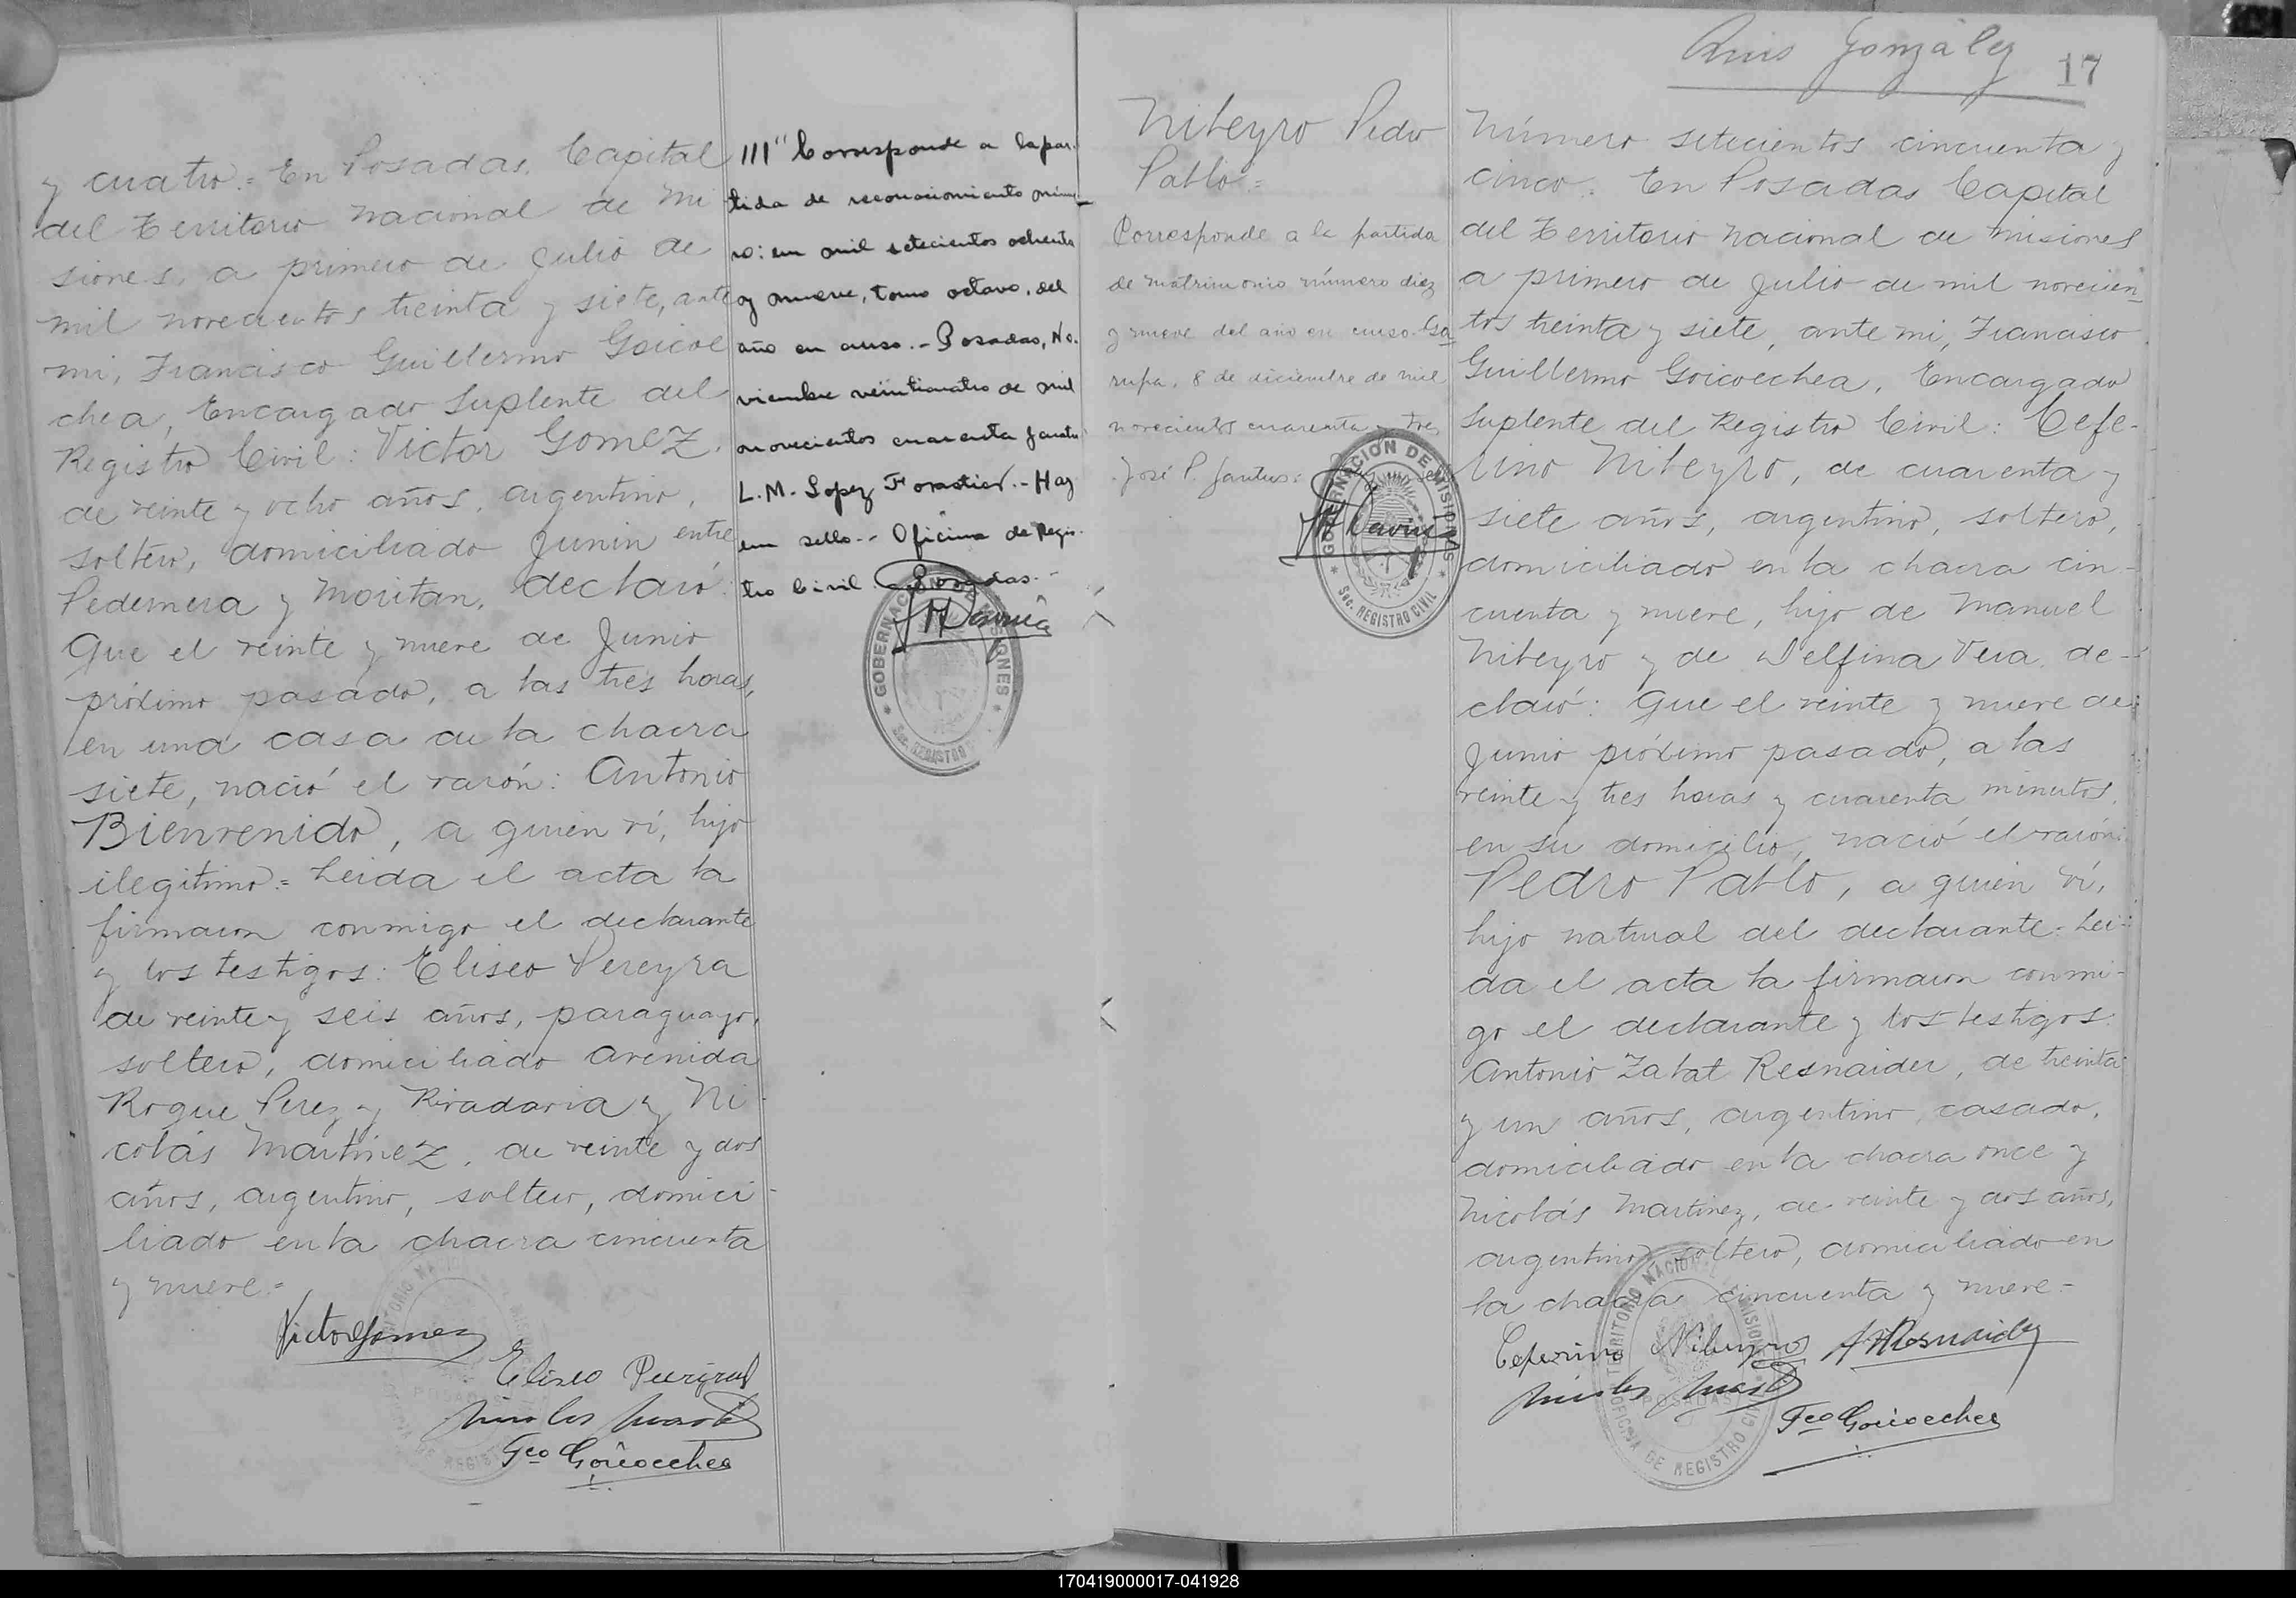 y cuatro.= En Posadas, Capital
del Territorio nacional de Mi
siones, a primero de Julio de
mil novecientos treinta y siete, ante
mi, Francisco Guillermo Goicoe
chea, Encargado Suplente del
Registro Civil: Victor Gomez,
de veinte y ocho años, argentino,
soltero, domiciliado Junin entre
Pedernera y Moritan, declaró:
Que el veinte y nueve de Junio
próximo pasado, a las tres horas,
en una casa de la chacra
siete, nació el varón: Antonio
Bienvenido, a quien ví, hijo
ilegitimo.= Leida el acta la
firmaron conmigo el declarante
y los testigos: Eliseo Pereyra
de veinte y seis años, paraguayo,
soltero, domiciliado Avenida
Roque Perez y Rivadavia y Ni
colás Martinez, de veinte y dos
años, argentino, soltero, domici-
liado en la chacra cincuenta
y nueve.=
Victor Gomez
Eliseo Pereyra
Nicolas Mart
Fco Goicoechea
TERRITORIO NACIONAL DE MISIONES
POSADAS
OFICINA DE REGISTRO CIVIL
III" Corresponde a la par-
tida de reconocimiento núme-
ro: un mil setecientos ochenta
y nueve, tomo octavo, del
año en curso.- Posadas, No-
viembre veinticuatro de mil
novecientos cuarenta y cuatro
L.M. Lopez Forastier.- Hay
un sello.- Oficina de Regis-
tro Civil. Posadas.-
GOBERNACIÓN DE MISIONES
Sec. REGISTRO CIVIL
Luis González
17
Nibeyro Pedro
Pablo.=
Corresponde a la partida
de matrimonio número diez
y nueve del año en curso.
rupa, 8 de diciembre de mil
novecientos cuarenta y tres
José P. Santus:
GOBERNACIÓN DE MISIONES
Sec. REGISTRO CIVIL
Número setecientos cincuenta y
cinco. En Posadas Capital
del Territorio nacional de Misiones
a primero de Julio de mil novecien-
tos treinta y siete, ante mi, Francisco
Guillermo Goicoechea, Encargado
Suplente del Registro Civil: Cefe-
rino Nibeyro, de cuarenta y
siete años, argentino, soltero,
domiciliado en la chacra cin-
cuenta y nueve, hijo de Manuel
Nibeyro y de Delfina Vera, de-
claró: Que el veinte y nueve de
Junio próximo pasado, a las
veinte y tres horas y cuarenta minutos,
en su domicilio, nació el varón:
Pedro Pablo, a quien ví,
hijo natural del declarante.- Lei-
da el acta la firmaron conmi-
go el declarante y los testigos:
Antonio Zabat Resnaider, de treinta
y un años, argentino, casado,
domiciliado en la chacra once y
Nicolás Martinez, de veinte y dos años,
argentino, soltero, domiciliado en
la chacra cincuenta y nueve.-
Ceferino Nibeyro A Z Resnaider
Nicolas Mart
Fco Goicoechea
TERRITORIO NACIONAL DE MISIONES
POSADAS
OFICINA DE REGISTRO CIVIL
170419000017-041928